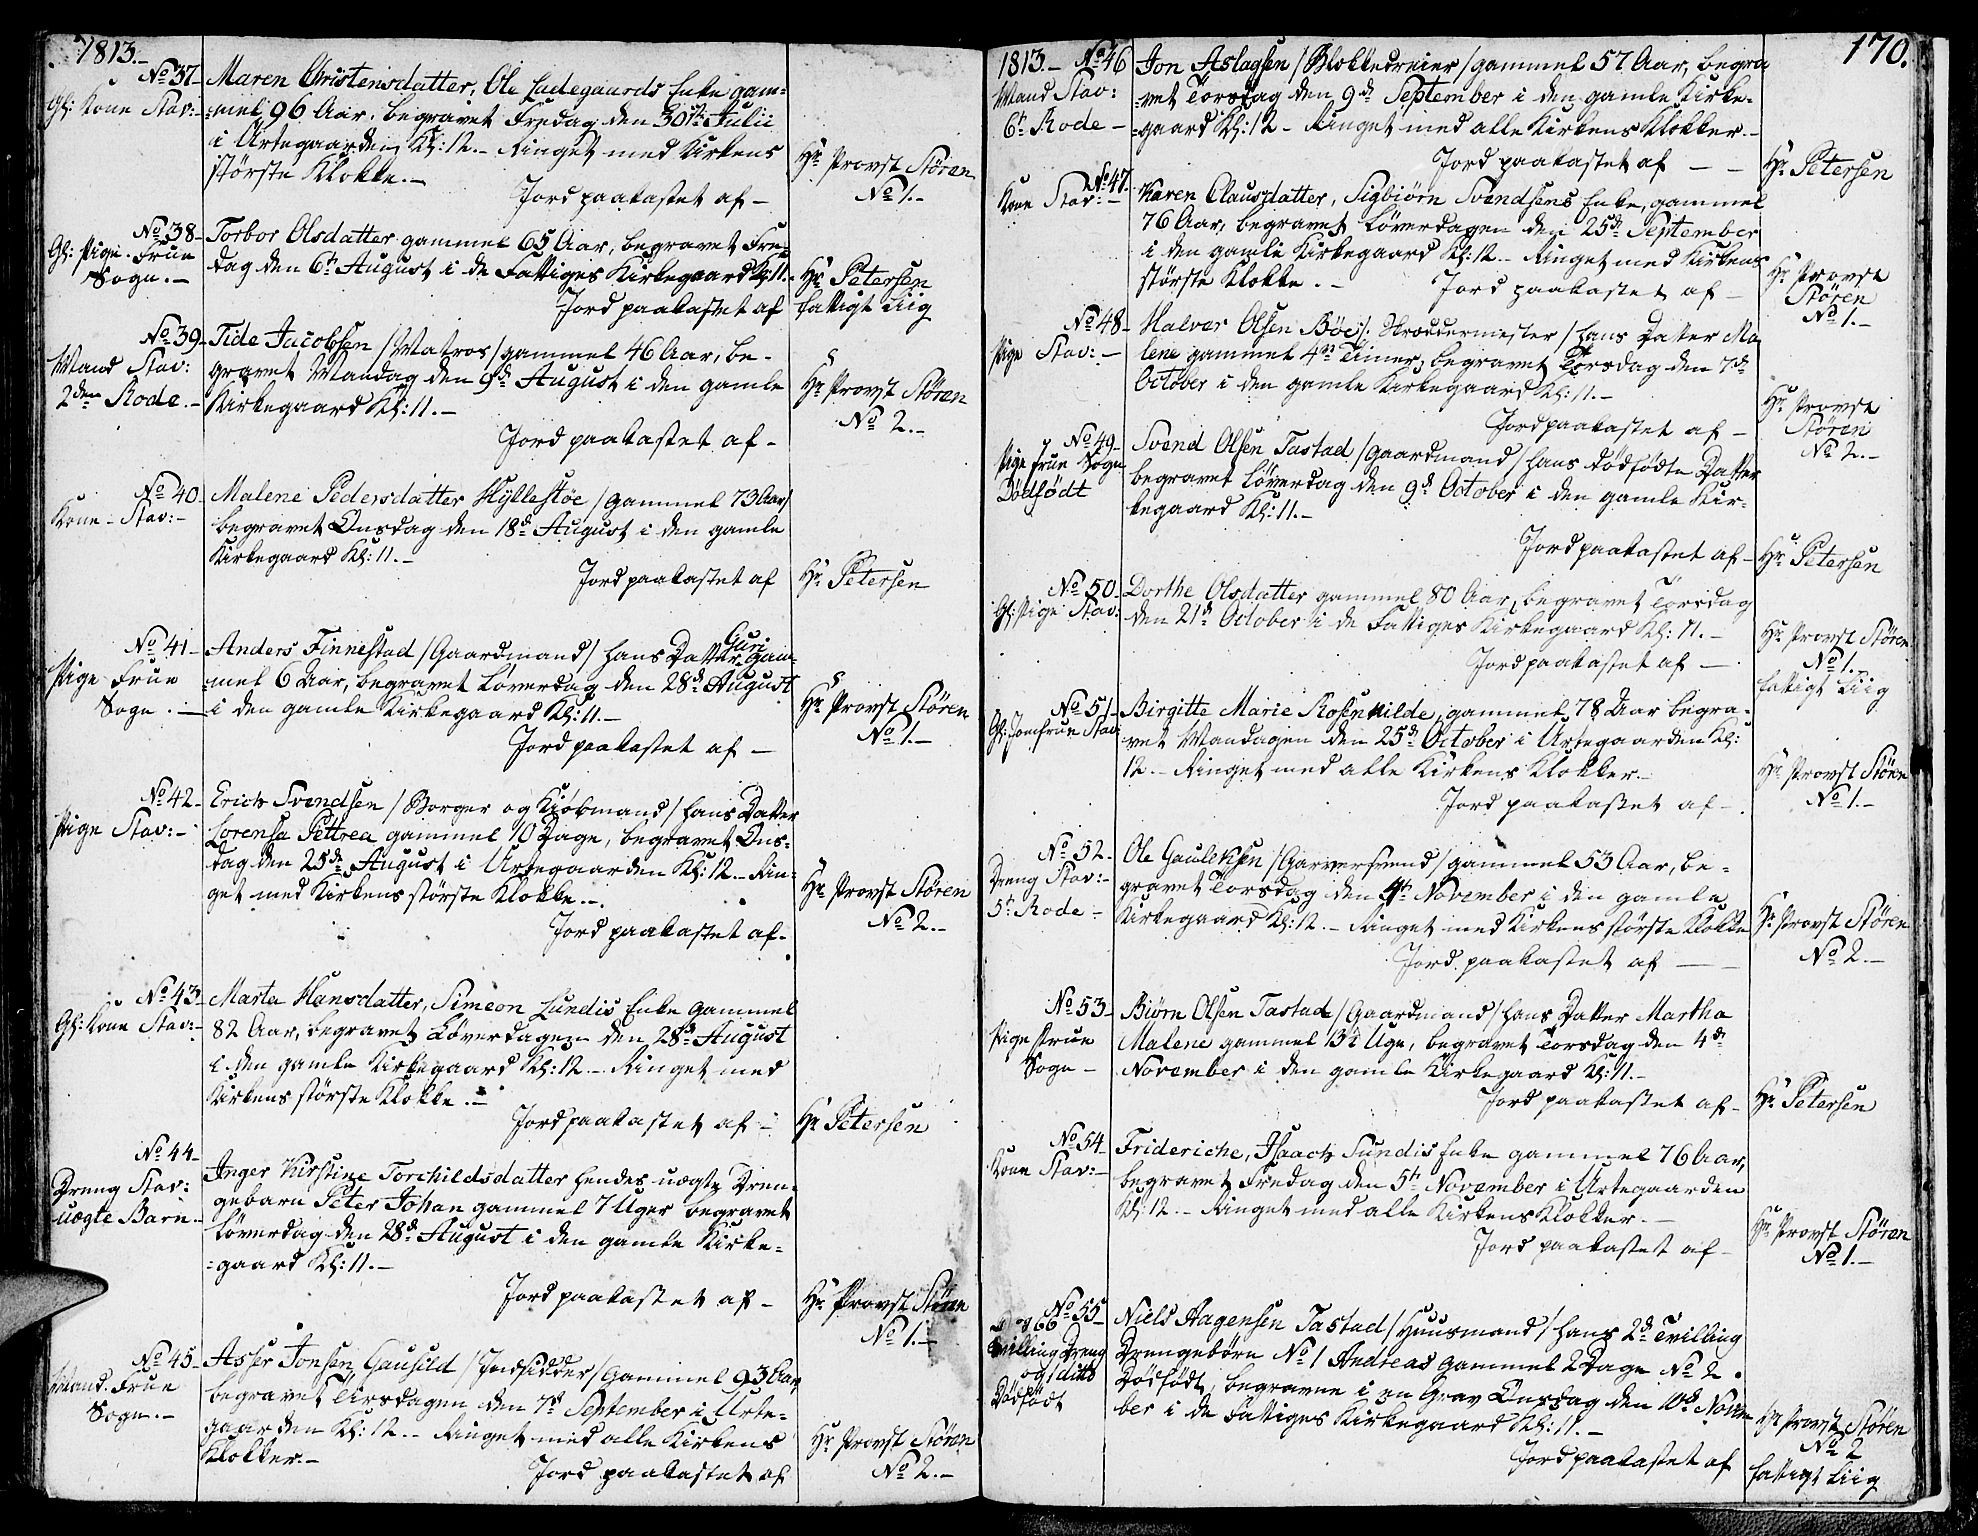 1813.-
No 37-
Gl: Kone Stav:-
Maren Christensdatter, Ole Ladegaards Enke gam=
=mel 96 Aar, begravet Fredag den 30te Julii
i Urtegaarden Kl: 12.- Ringet med Kirkens
største Klokke.-
Jord paakastet af -
Hr Provst Støren
No 1.-
No 38-
Gl: Pige. Frue
Sogn.-
Torbor Olsdatter gammel 65 Aar, begravet Fre=
dag den 6te August i de Fattiges Kirkegaard Kl: 11.-
Jord paakastet af
Hr Petersen
fattigt Liig
No 39-
Mand Stav:
2den Rode.-
Tide Jacobsen /Matros/ gammel 46 Aar, be-
gravet Mandag den 9de August i den gamle
Kirkegaard Kl: 11.-
Jord paakastet af -
Hr Provst Støren
No 2.-
No 40-
Kone - Stav:-
Malene Pedersdatter Hyllestøe /gammel 73 Aar/
begravet Onsdag den 18de August i den gamle
Kirkegaard Kl: 11.-
Jord paakastet af
Hr Petersen
No 41-
Pige Frue
Sogn.-
Guri
Anders Finnestad /Gaardmand/ hans Datter gam=
=mel 6 Aar, begravet Løverdag den 28de August
i den gamle Kirkegaard Kl: 11.-
Jord paakastet af -
Hr Provst Støren
No 1.-
No 42-
Pige Stav:-
Erich Svendsen /Borger og Kiøbmand/ hans Datter
Lorensa Pettrea gammel 10 Dage, begravet Ons=
dag den 25de August i Urtegaarden Kl: 12.- Rin=
get med Kirkens største Klokke.-
Jord paakastet af-
Hr Provst Støren
No 2.-
No 43-
Gl: Kone Stav:-
Marta Hansdatter, Simeon Lundis Enke gammel
82 Aar, begravet Løverdagen den 28de August
i den gamle Kirkegaard Kl: 12.- Ringet med
Kirkens største Klokke.-
Jord paakastet af -
Hr Petersen
No 44-
Dreng Stav:
uægte Barn-
Inger Kirstine Torchildsdatter hendes uægte Dren=
gebarn Peter Johan gammel 7 Uger begravet
Løverdag den 28de August i den gamle Kirke=
=gaard Kl: 11.-
Jord paakastet af -
Hr Provst Støren
No 1.-
No 45-
Mand. Frue
Sogn.-
Asser Jonsen Gausild /Indsidder/ gammel 93 Aar
begravet Tirsdagen den 7de September i Urte=
gaarden Kl: 12.- Ringet med alle Kirkens
Klokker.-
Jord paakastet af
Hr Provst Støren
No 2.-
170.
1813.- No 46
Mand Stav:
6te Rode -
Jon Aslagsen /Blokkedreier/ gammel 57 Aar, begra
=vet Torsdag den 9de September i den gamle Kirke=
=gaard Kl: 12 - Ringet med alle Kirkens Klokker.-
Jord paakastet af - -
Hr Petersen
No 47.
Kone Stav:-
Karen Clausdatter, Sigbiørn Svendsens Enke, gammel
76 Aar, begravet Løverdagen den 25de September
i den gamle Kirkegaard Kl: 12.- Ringet med Kirkens
største Klokke.-
Jord paakastet af -
Hr Provst
Støren
No 1.-
No 48-
Pige Stav:-
Halvor Olsen Bøe /: Skreddermester / hans Datter Ma
lene gammel 4re Timer, begravet Torsdag den 7de
October i den gamle Kirkegaard Kl: 11.-
Jord paakastet af -
Hr Provst
Støren
No 2.-
No 49-
Pige Frue Sogn
Dödfödt
Svend Olsen Tastad /Gaardmand/ hans dödfödte Datter
begravet Løverdag den 9de October i den gamle Kir-
kegaard Kl: 11.-
Jord paakastet af -
Hr Petersen
No 50-
Gl: Pige Stav:
Dorthe Olsdatter gammel 80 Aar, begravet Torsdag
den 21de October i de Fattiges Kirkegaard Kl: 11.-
Jord paakastet af -
Hr Provst Støren
No 1.-
fattigt Liig
No 51-
Gl: Jomfrue Stav
Birgitte Marie Rosenkilde, gammel 78 Aar begra-
vet Mandagen den 25de October i Urtegaarden Kl:
12.- Ringet med alle Kirkens Klokker.-
Jord paakastet af -
Hr Provst Støren
No 1.-
No 52-
Dreng Stav:-
5te Rode -
Ole Gauleksen /Garversvend/ gammel 53 Aar, be-
gravet Torsdag den 4de November i den gamle
Kirkegaard Kl: 12.- Ringet med Kirkens største Klokke
Jord paakastet af - -
Hr Provst Støren
No 2.-
No 53-
Pige Frue
Sogn -
Biørn Olsen Tastad /Gaardmand/ hans Datter Martha
Malene gammel 13½ Uge, begravet Torsdag den 4de
November i den gamle Kirkegaard Kl: 11.-
Jord paakastet af -
Hr Petersen
No 54-
Kone Stav:-
Frideriche, Isaach Sundis Enke gammel 76 Aar,
begravet Fredag den 5te November i Urtegaarden
Kl: 12.- Ringet med alle Kirkens Klokker.-
Jord paakastet af -
Hr Provst Støren
No 1.-
No 55-
og 66
tvilling Dreng
og ditto
Dødfødt
Niels Aagensen Tastad /Huusmand/ hans 2de Tvilling
Drengebørn No 1 Andreas gammel 2 Dage No 2.
Dödfödt, begravne i en Grav Onsdag den 10de Novem
ber i de Fattiges Kirkegaard Kl: 11.-
Jord paakastet af
Hr Provst Støren
No 2
fattigt Liig